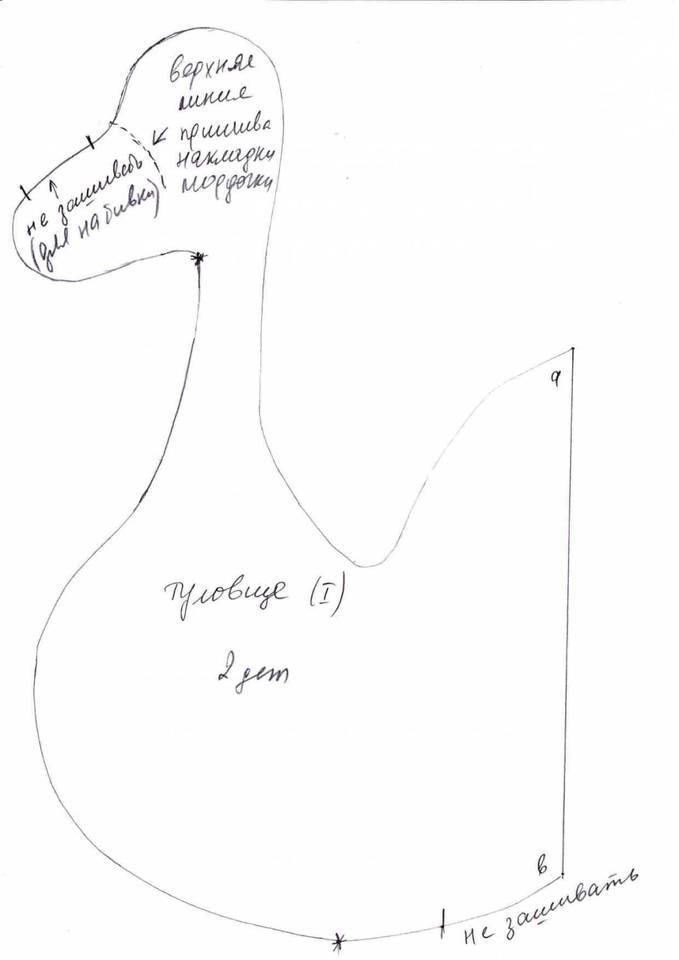 верхняя
линия
пришива
накладки
мордочки
не зашивать
(для набивки)
а
туловище (I)
2 дет
в
не зашивать